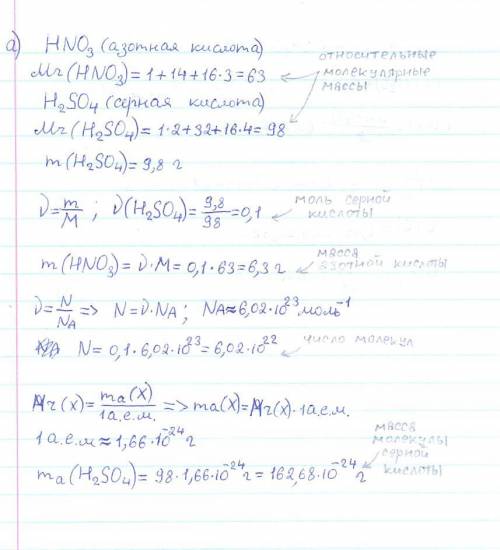 а) HNO₃ (азотная кислота)
Mr(HNO₃)=1+14+16·3=63
относительные
молекулярные
массы
H₂SO₄ (серная кислота)
Mr(H₂SO₄)=1·2+32+16·4=98
m(H₂SO₄)=9,8 г
ν=m/M ; ν(H₂SO₄)=9,8/98=0,1
моль серной
кислоты
m(HNO₃)=ν·M=0,1·63=6,3 г
масса
азотной кислоты
ν=N/NA => N=ν·NA; NA≈6,02·10²³ моль⁻¹
N=0,1·6,02·10²³=6,02·10²²
число молекул
Mr(X)=ma(X)/1а.е.м. => ma(X)=Mr(X)·1а.е.м.
1а.е.м≈1,66·10⁻²⁴ г
масса
молекулы
серной
кислоты
ma(H₂SO₄)=98·1,66·10⁻²⁴г=162,68·10⁻²⁴ г